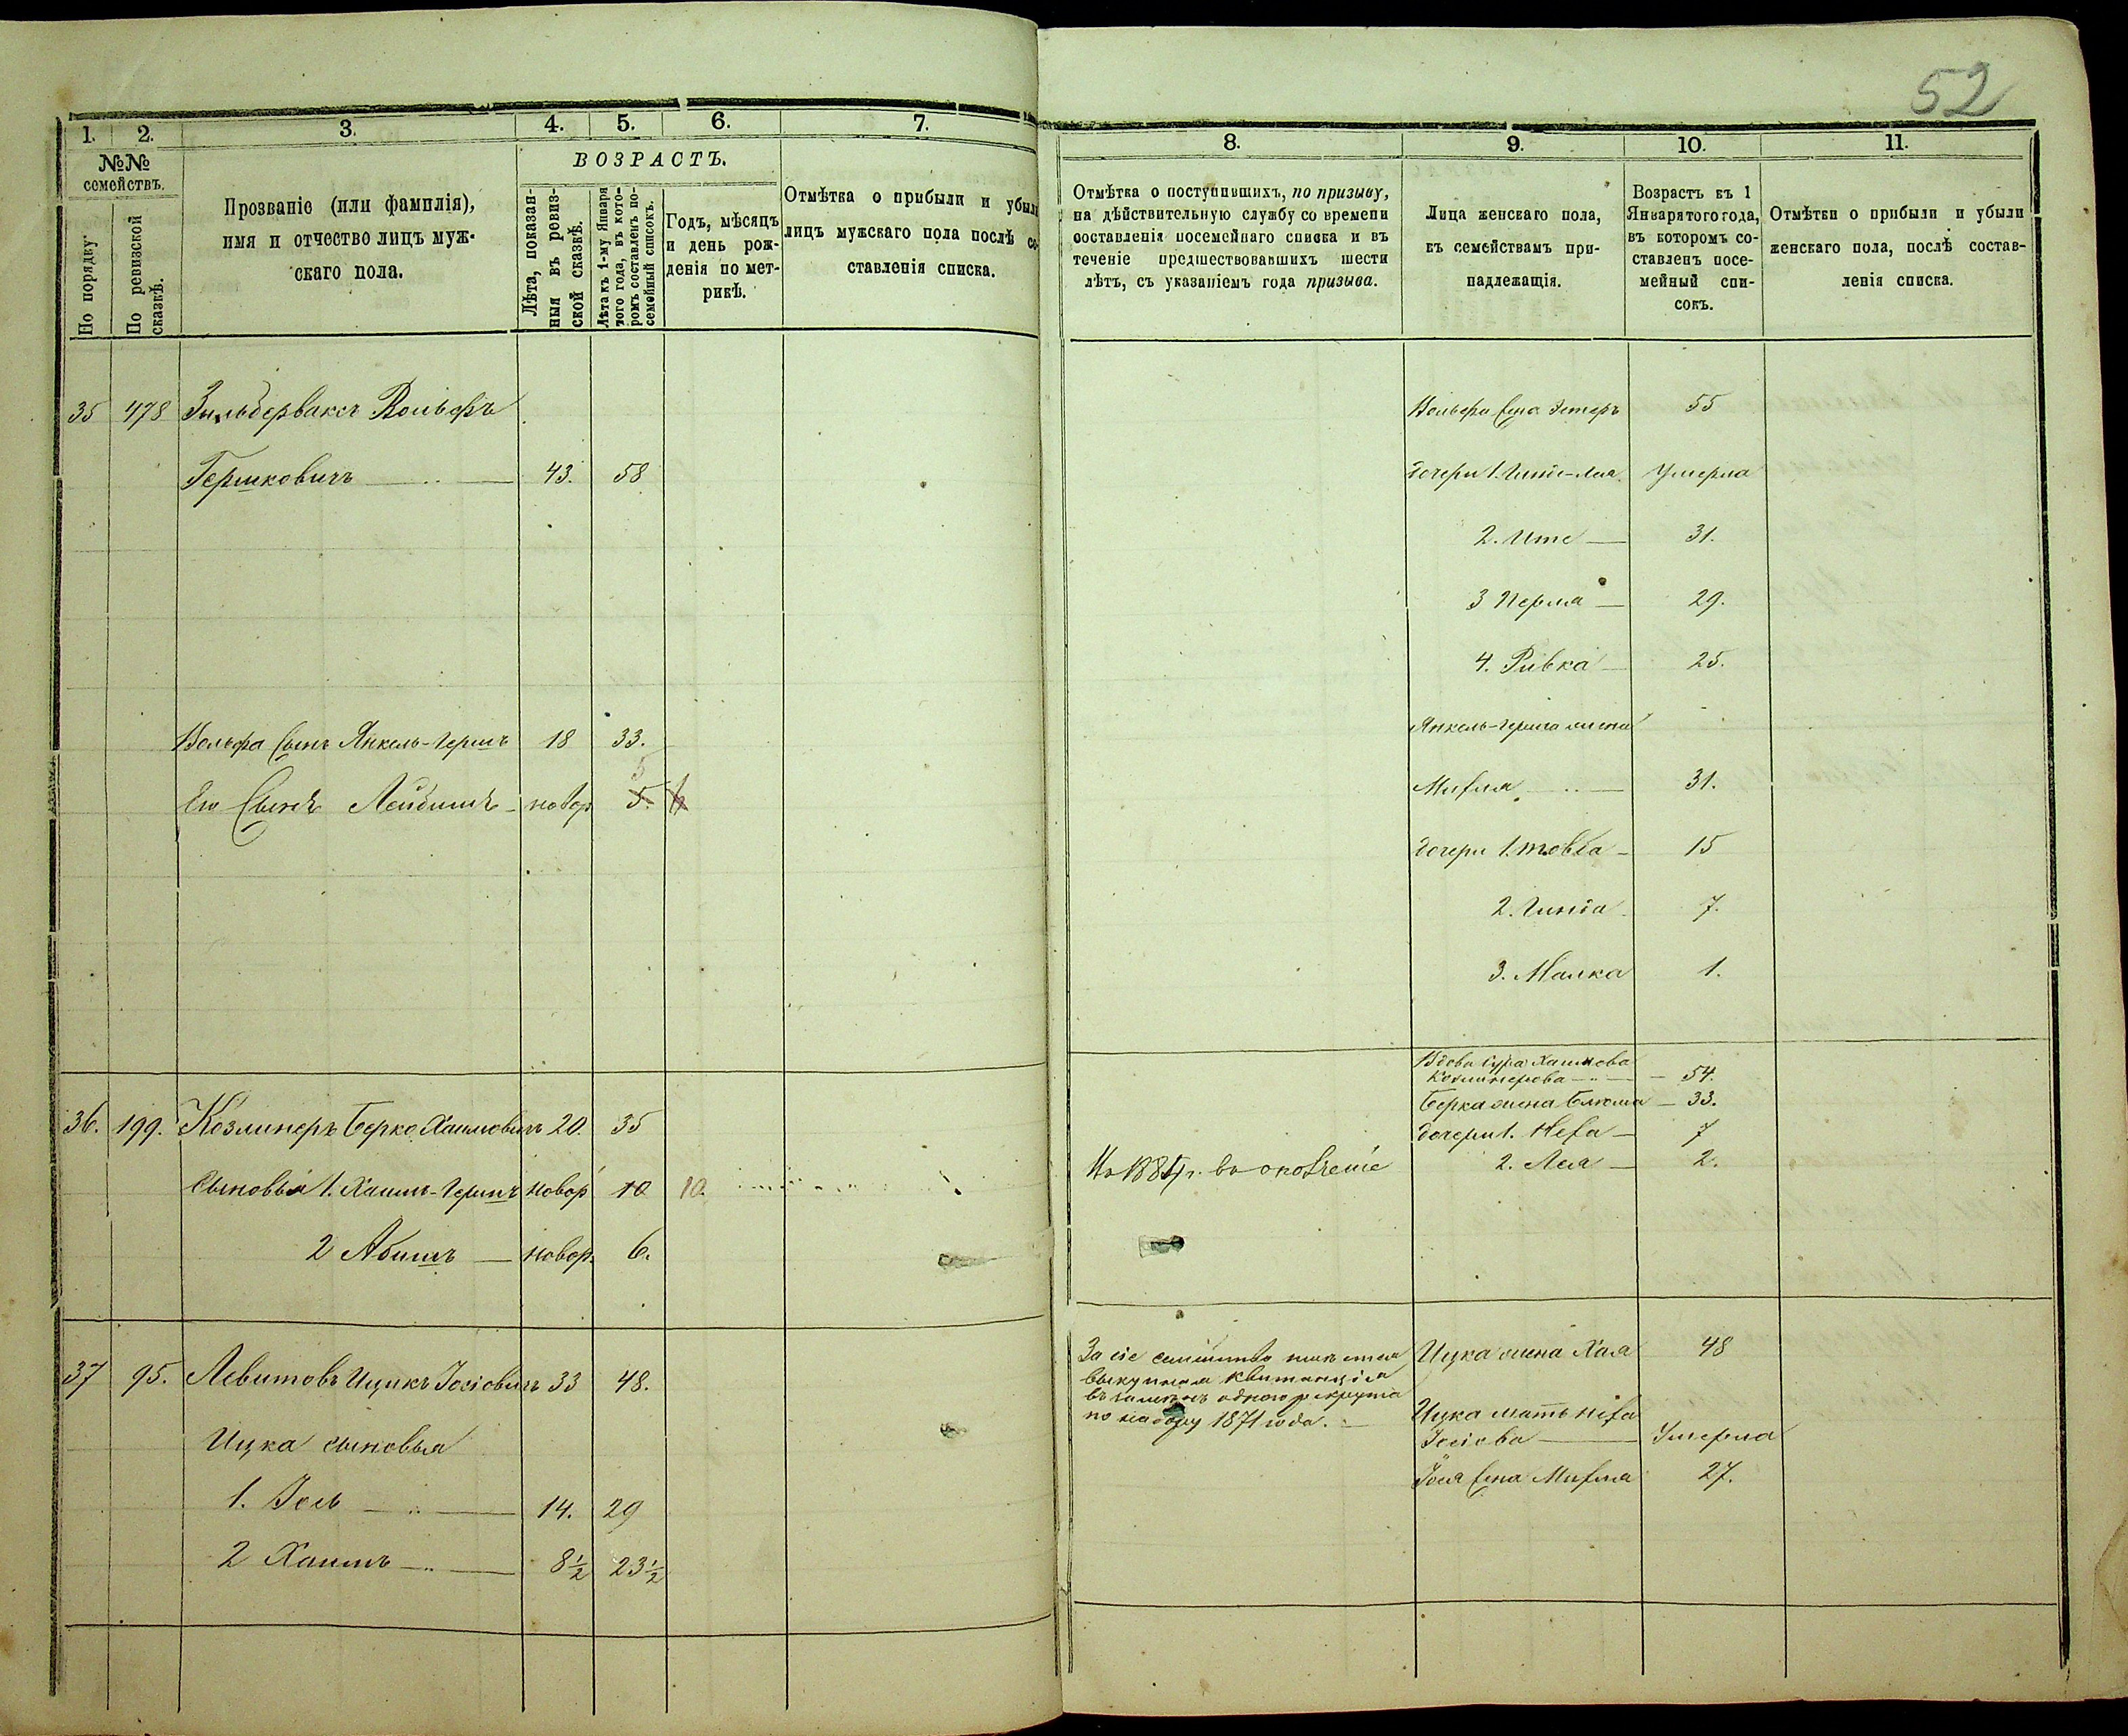 52
1. 2. 3. 4. 5. 6. 7.
№№ семействъ.
По порядку.
По ревизской сказкѣ.
Прозваніе (или фамилія),
имя и отчество лицъ муж-
скаго пола.
ВОЗРАСТЪ.
Лѣта, показан-
ныя въ ревиз-
ской сказкѣ.
Лѣта къ 1-му Января
того года, въ кото-
ромъ составленъ по-
семейный списокъ.
Годъ, мѣсяцъ
и день рож-
денія по мет-
рикѣ.
Отмѣтка о прибыли и убыли
лицъ мужскаго пола послѣ со-
ставленія списка.
35 478 Зильбервассъ Вольфъ
Гершковичъ 43. 58
Вольфа сынъ Янкель-Гершъ 18 33.
5
Его Сынъ Лейбишъ новор 5. 6
36. 199. Козлинеръ Берко Хаимовичъ 20. 35
Сыновья 1. Хаимъ-Гершъ новор 10 10.
2 Абишъ новор. 6.
37 95. Левитовъ Ицикъ Іосіовичъ 33 48.
Ицка сыновья
1. Іось 14. 29
2 Хаимъ 8½ 23½
8. 9. 10. 11.
Отмѣтка о поступившихъ, по призыву,
на дѣйствительную службу со времени
составленія посемейнаго списка и въ
теченіе предшествовавшихъ шести
лѣтъ, съ указаніемъ года призыва.
Лица женскаго пола,
къ семействамъ при-
надлежащія.
Возрастъ къ 1
Января того года,
въ которомъ со-
ставленъ посе-
мейный спи-
сокъ.
Отмѣтки о прибыли и убыли
женскаго пола, послѣ состав-
ленія списка.
Вольфа жена Эстеръ 55
дочери 1. Гинде-Лея Умерла
2. Ите 31.
3 Перля 29.
4. Ривка 25.
Янкель-Герша жена
Мирля 31.
дочери 1. Товба 15
2. Гинда 7.
3. Малка 1.
Вдова Сура Хаимова
Козлинерова 54.
Берка жена Блюма 33.
дочери 1. Неха 7
2. Лея 2.
въ ополченіе
За сіе семейство имѣется
выкупная квитанція
въ одного рекрута
по набору 1871 года.
Ицка жена Хая 48
Ицка мать
Іосіова Умерла
Іося жена Мирля 27.